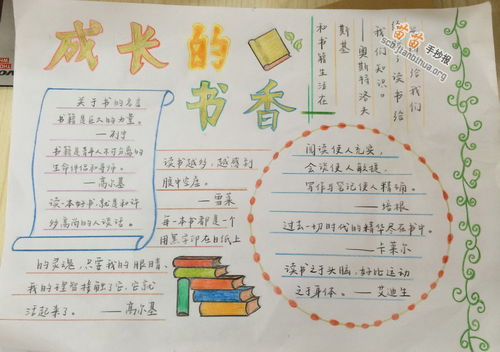 成长的
书香
和书籍生活在
斯基
——奥斯特洛夫
我们知识。
了读书给
给我们
苗苗手抄报
scb.jianbihua.org
关于书的名言
书籍是巨大的力量。
——列宁
书籍是青年人不可分离的
生命伴侣和导师。
——高尔基
读一本好书，就是和许
多高尚的人谈话。
读书越多，越感到
腹中空虚。
——雪莱
每一本书都是一个
用黑字印在白纸上
的灵魂，只要我的眼睛、
我的理智接触了它，它就
活起来了。——高尔基
阅读使人充实，
会谈使人敏捷，
写作与笔记使人精确。
——培根
过去一切时代的精华尽在书中。
——卡莱尔
读书之于头脑，好比运动
之于身体。——艾迪生